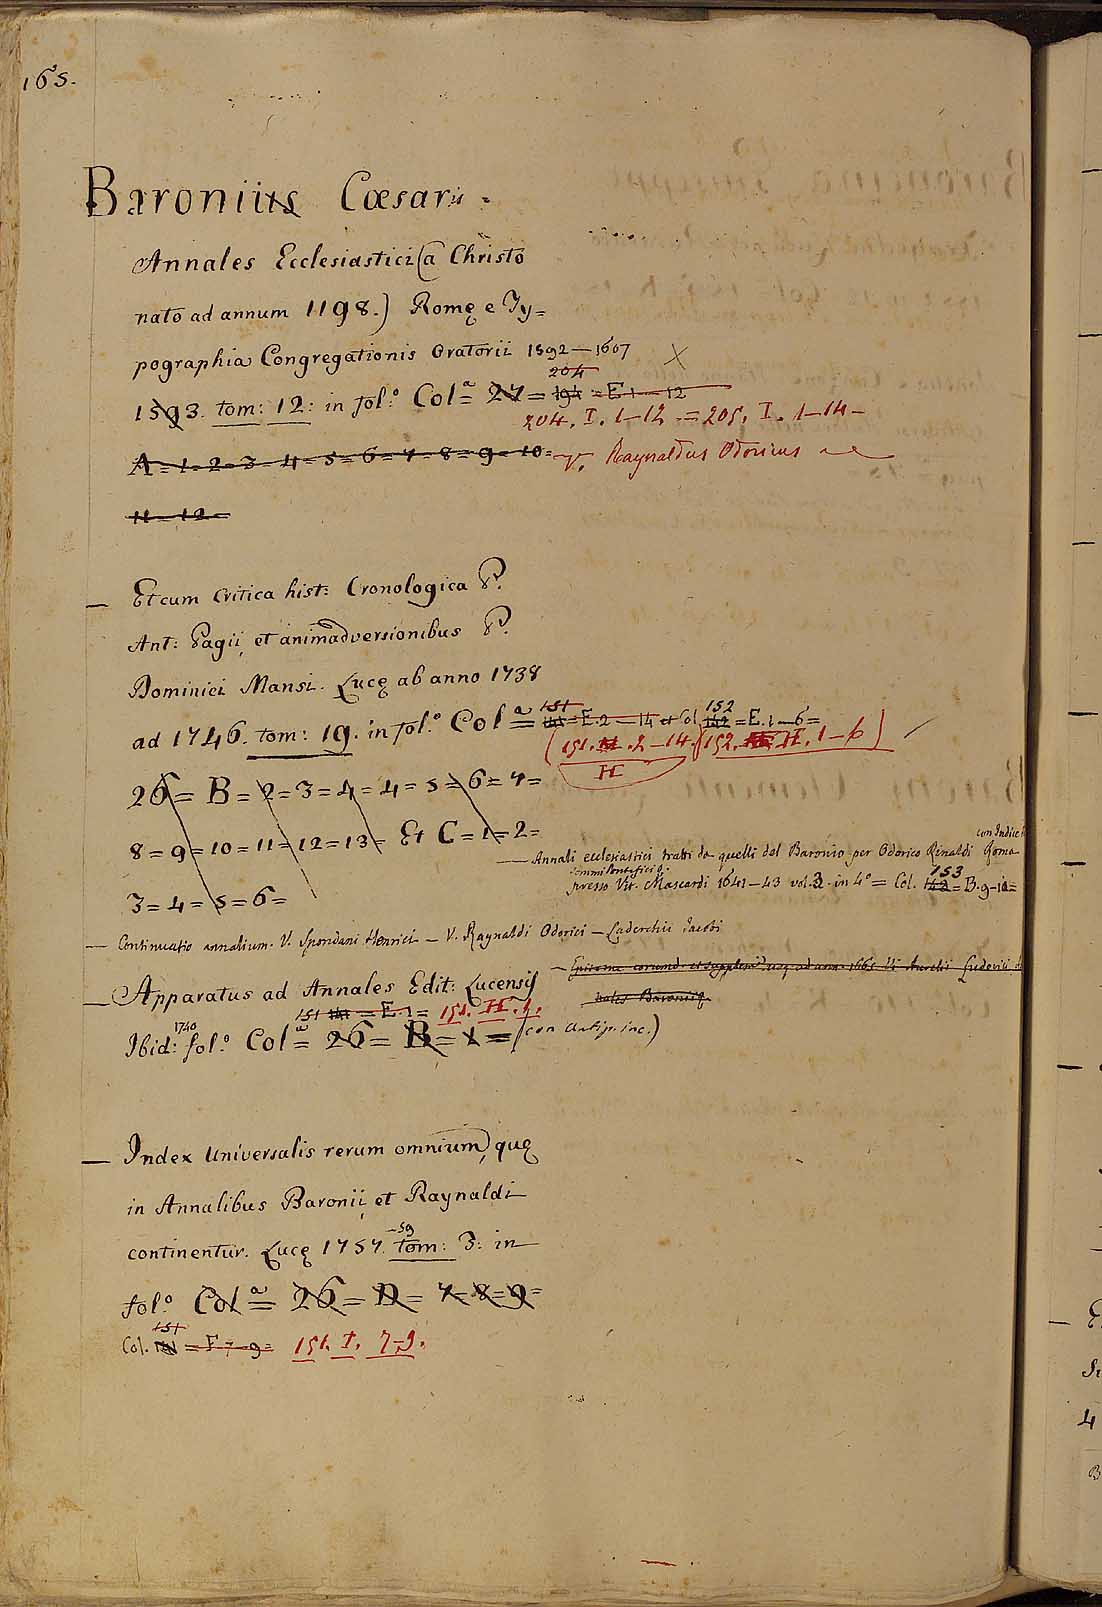 165.
Baronius Cæsaris =
Annales Ecclesiastici (a Christo
nato ad annum 1198.) Romę e Ty=
pographia Congregationis Oratorii 1592—1607
204
1593. tom: 12: in fol.º Colª = 27 = 191 = E 1—12
204. I. 1—12 = 205. I. 1—14—
A = 1 = 2 = 3 = 4 = 5 = 6 = 7 = 8 = 9 = 10 =
v. Raynaldus Odoricus
11 = 12 =
— Et cum Critica hist: Cronologica P.
Ant: Pagii, et animadversionibus P.
Dominici Mansi. Lucę ab anno 1738
151 152
ad 1746. tom: 19. in fol.º Colª = 141 = E. 2—14 et Col. 142 = E. 1—6 =
(151. .2—14.) (152. H. 1—6)
H
26 = B = 2 = 3 = 4 = 4 = 5 = 6 = 7 =
8 = 9 = 10 = 11 = 12 = 13 = Et C = 1 = 2 =
con Indice
— Annali ecclesiastici tratti da quelli del Baronio per Odorico Rinaldi Roma
153
presso Vit. Mascardi 1641—43 vol. 3. in 4º = Col. 142 = B. 9—10 =
3 = 4 = 5 = 6 =
— Continuatio annalium. V. Spondani Henrici — V. Raynaldi Odorici — Laderchii Jacobi
— Apparatus ad Annales Edit: Lucensis
— Epitome eorund. et supplem. usq. ad ann. 1665 Aurelii Ludovici
nales Baronii
151 141 = E. 1 = 151. H. 1.
1740
Ibid: fol.º Colª = 26 = B = 1 = (con Antip. inc.)
— Index Universalis rerum omnium, quę
in Annalibus Baronii, et Raynaldi
—59
continentur. Lucę 1757. tom: 3: in
fol.º Colª = 26 = D = 7 = 8 = 9 =
151
Col. 141 = F 7—9 = 151. I. 7-9.